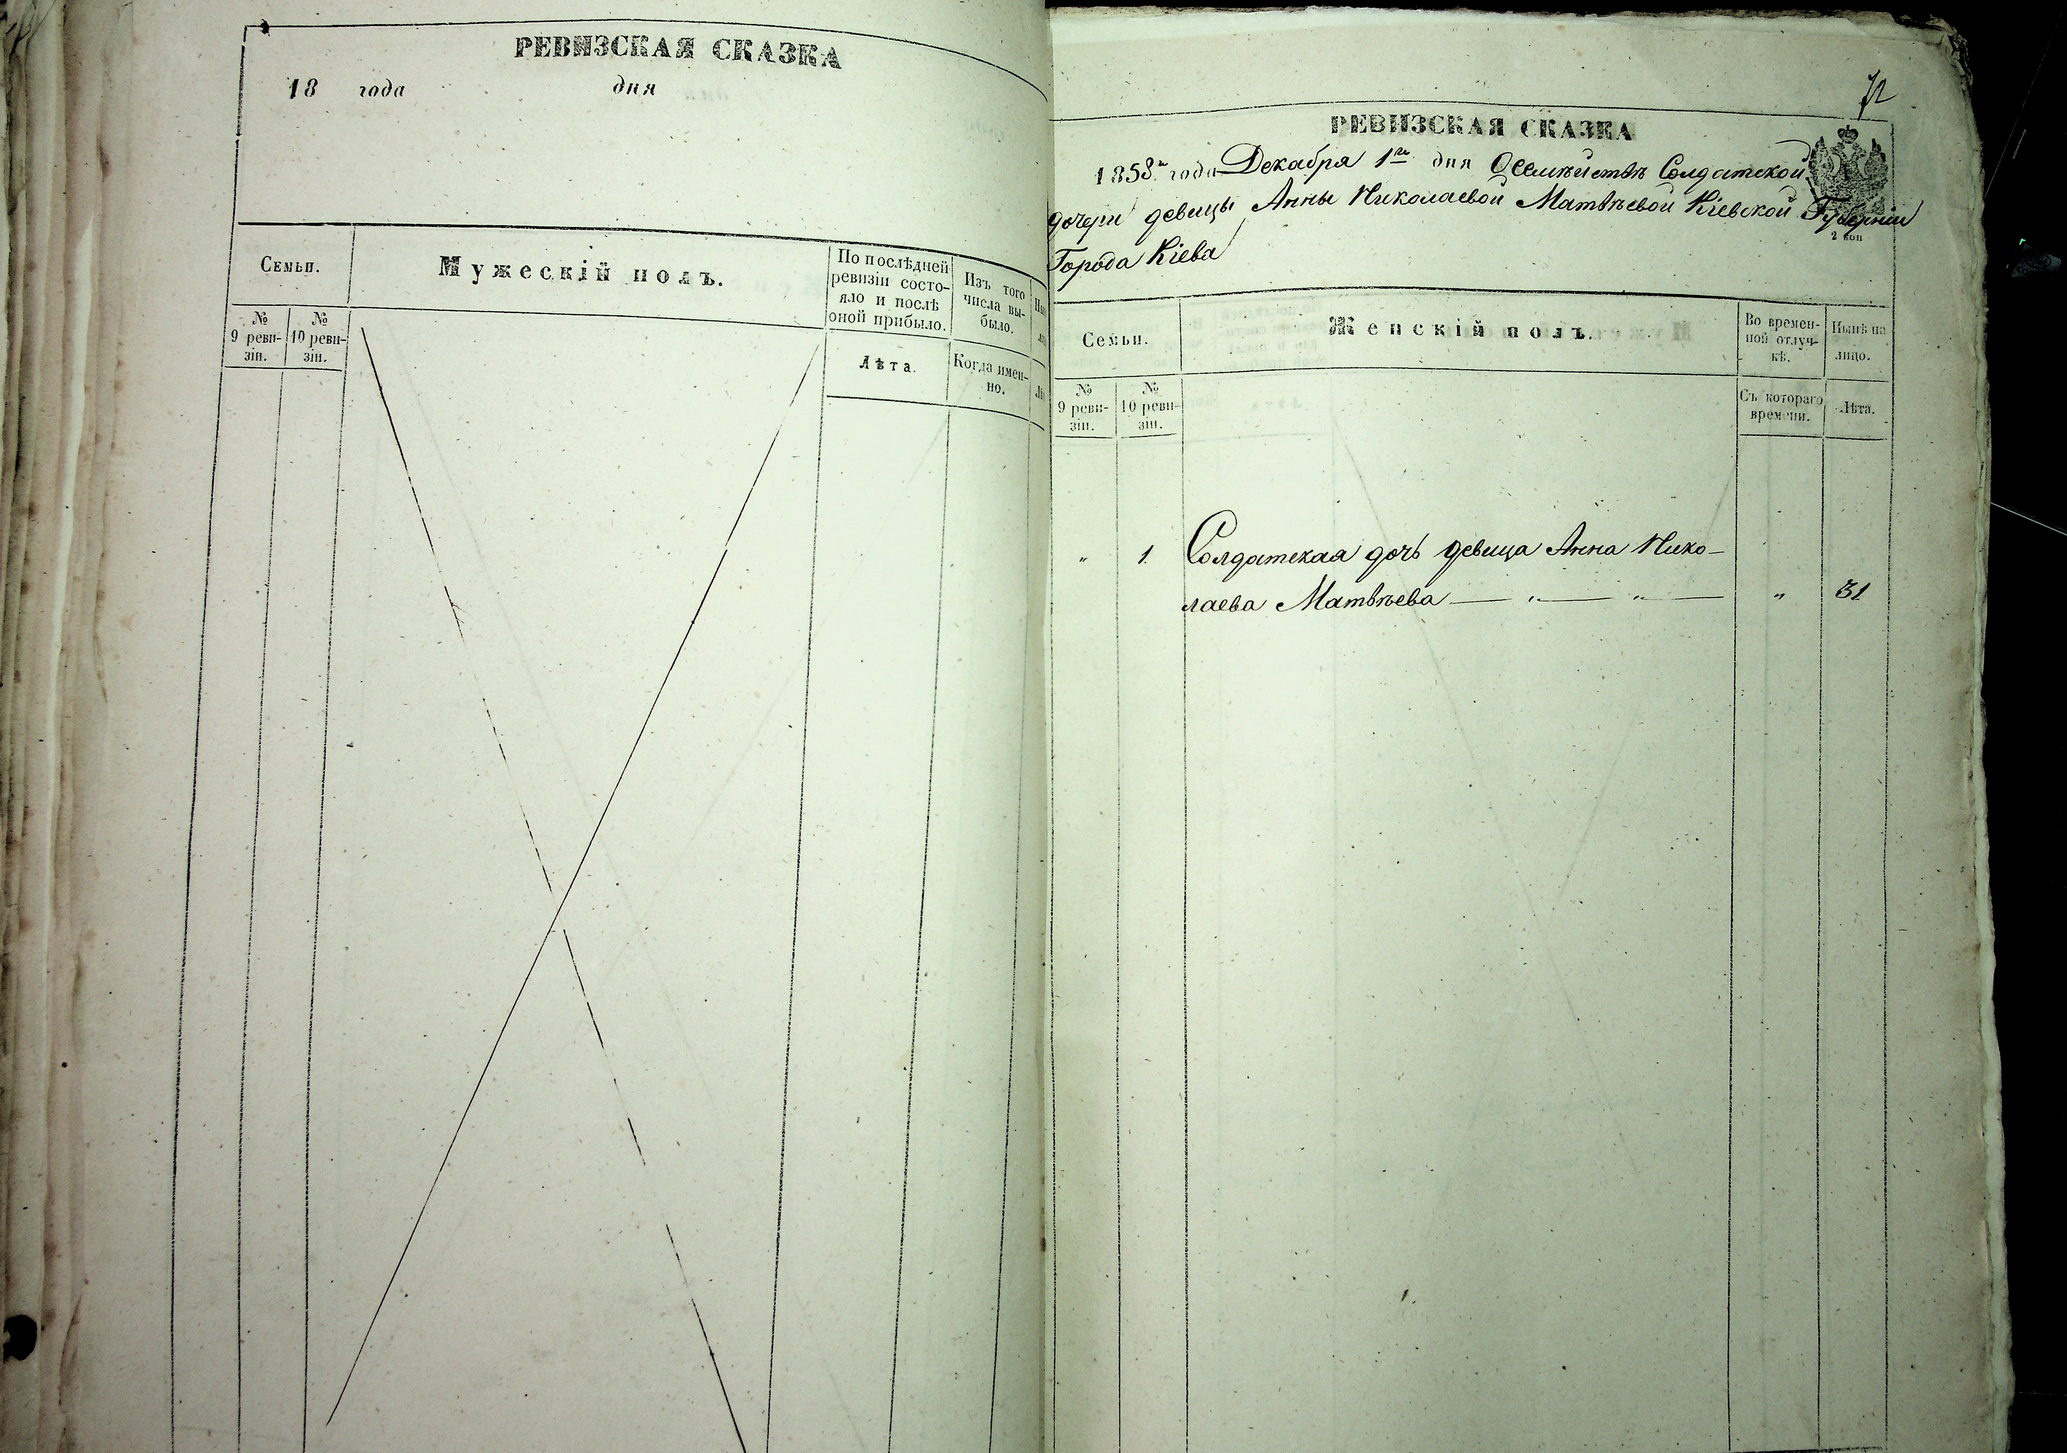 РЕВИЗСКАЯ СКАЗКА
18 года дня
Семьи.
Мужескій полъ.
По послѣдней
ревизіи состо-
яло и послѣ
оной прибыло.
Изъ того
числа вы-
было.
№
9 реви-
зіи.
№
10 реви-
зіи.
Лѣта.
Когда имен-
но.
72
РЕВИЗСКАЯ СКАЗКА
1858го года Декабря 1го дня О семѣйствѣ Солдатской
дочери девицы Анны Николаевой Матвѣевой Кіевской Губерніи
Города Кіева
2 коп
Семьи.
Женскій полъ.
Во времен-
ной отлуч-
кѣ.
Нынѣ на
лицо.
№
9 реви-
зіи.
№
10 реви-
зіи.
Съ котораго
времени.
Лѣта.
" 1. Солдатская дочь девица Анна Нико-
лаева Матвѣева — " — " — " 31